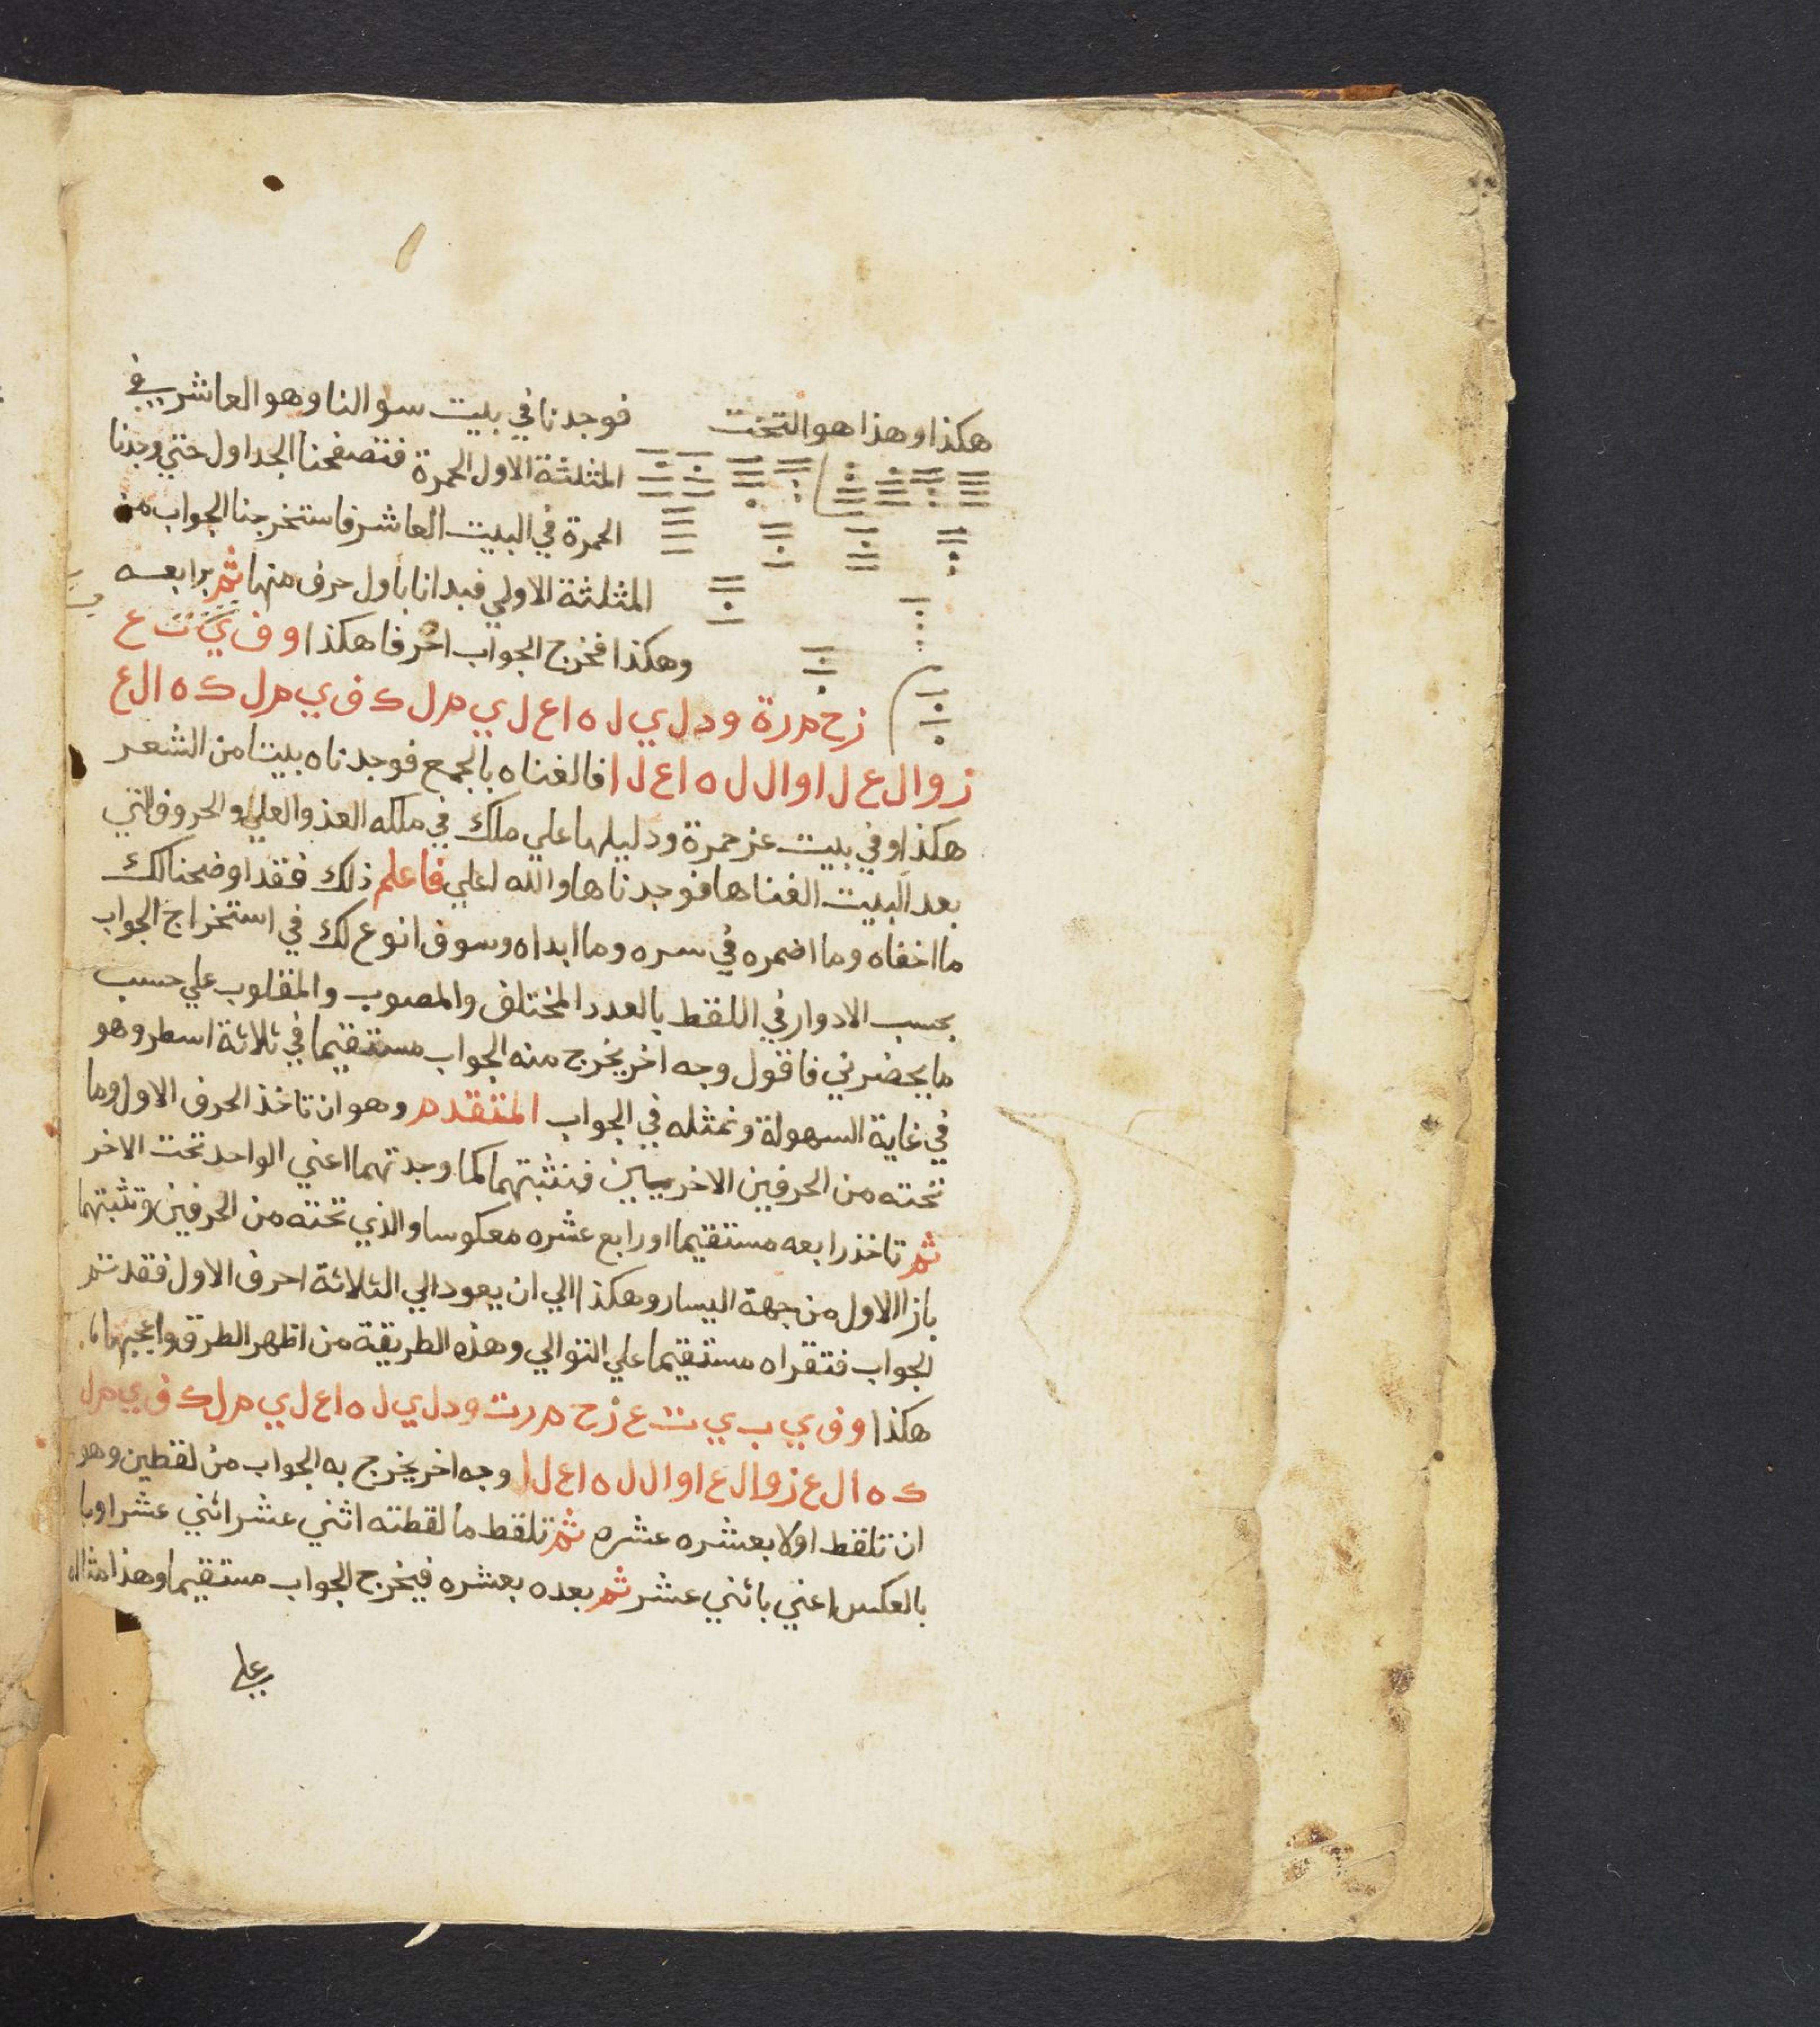 هكذا وهذا هو التخت
فوجدنا في بيت سوالنا وهو العاشر في
المثلثة الاول الحمرة فتصفحنا الجداول حتي وجدنا
الحمرة في البيت العاشر فاستخرجنا الجواب من
المثلثة الاولي فبدانا باول حرف منها ثم برابعه
وهكذا فخرج الجواب احرفا هكذا و ف ي ت ع
ز ح م ر ة و د ل ي ل ه ا ع ل ي م ل ك ف ي م ل ك ه ا ل ع
ز و ا ل ع ل ا و ا ل ل ه ا ع ل ا فالفناه بالجمع فوجدناه بيتا من الشعر
هكذا وفي بيت عز حمرة ودليلها علي ملك في ملكه العز والعلي والحروف التي
بعد البيت الفناها فوجدناها والله اعلي فاعلم ذلك فقد اوضحنا لك
ما اخفاه وما اضمره في سره وما ابداه وسوف انوع لك في استخراج الجواب
بحسب الادوار في اللقط بالعدد المختلف والمصوب والمقلوب علي حسب
ما يحضرني فاقول وجه اخر يخرج منه الجواب مستقيما في ثلاثة اسطر وهو
في غاية السهولة ونمثله في الجواب المتقدم وهو ان تاخذ الحرف الاول وما
تحته من الحرفين الاخريين فنثبتهما كما وجدتهما اعني الواحد تحت الاخر
ثم تاخذ رابعه مستقيما او رابع عشره معكوسا والذي تحته من الحرفين وتثبتهما
بازا الاول من جهة اليسار وهكذا الي ان يعود الي الثلاثة احرف الاول فقد تم
الجواب فتقراه مستقيما علي التوالي وهذه الطريقة من اظهر الطرق واعجبها
هكذا و ف ي ب ي ت ع ز ح م ر ت و د ل ي ل ه ا ع ل ي م ل ك ف ي م ل
ك ه ا ل ع ز و ا ل ع ا و ا ل ل ه ا ع ل ا وجه اخر يخرج به الجواب من لقطين وهو
ان تلقط اولا بعشره عشره ثم تلقط ما لقطته اثني عشر اثني عشر او با
بالعكس اعني باثني عشر ثم بعده بعشره فيخرج الجواب مستقيما وهذا مثاله
علي